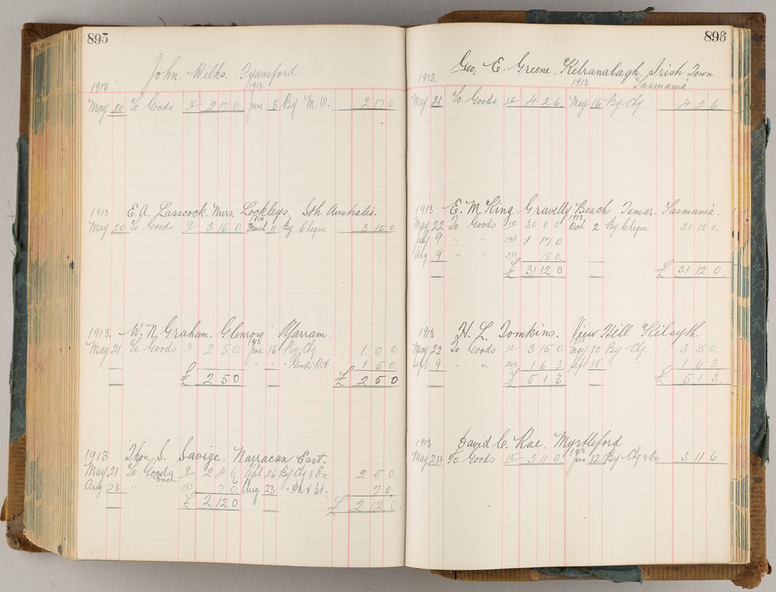 895
John. Wilks. Fyansford
1913 1913
May 20 To Goods 2 17 0 June 5 By M.O. 2 17 0
1913 E. A. Lasscock. Nurs. Lockleys, Sth Australia.
May 20 To Goods 9 3 15 0 11 By Cheque 3 15 0
1913. W. N. Graham. Glenrose Yarram.
May 21 To Goods 9 2 5 0 June 16 By Chq 1 0 0
" " Goods Ret 1 5 0
£ 2 5 0 £ 2 5 0
1913 Thos. S. Savige. Narracan East.
May 21 To Goods 9 2 4 6 Sept 26 By Chq & Ex 2 5 0
Aug 23 " " 7 0 Aug 23 7 0
£ 2 12 0 £ 2 12 0
896
Geo. E. Greene. Kelranabagh, Irish Town
1913. 1913 Tasmania.
May 21 To Goods 4 2 6 May 16 By Chq 4 2 6
1913 E. M. King Gravelly Beach Tamar. Tasmania.
May 22 To Goods 30 0 0 Oct 2 By Cheque 31 12 0
July 9 " " 17 0
Aug 9 " " 15 0
£ 31 12 0 £ 31 12 0
1913 H. L. Tomkins. View Hill Kilsyth.
May 22 To Goods 3 15 0 May 30 By Chq. 3 15 0
Sept 9 " " 1 6 3 Sept 18 " " 1 6 3
£ 5 1 3 £ 5 1 3
1913 David C. Rae. Myrtleford
May 24 To Goods 3 11 0 June 12 By Chq & Ex 3 11 6